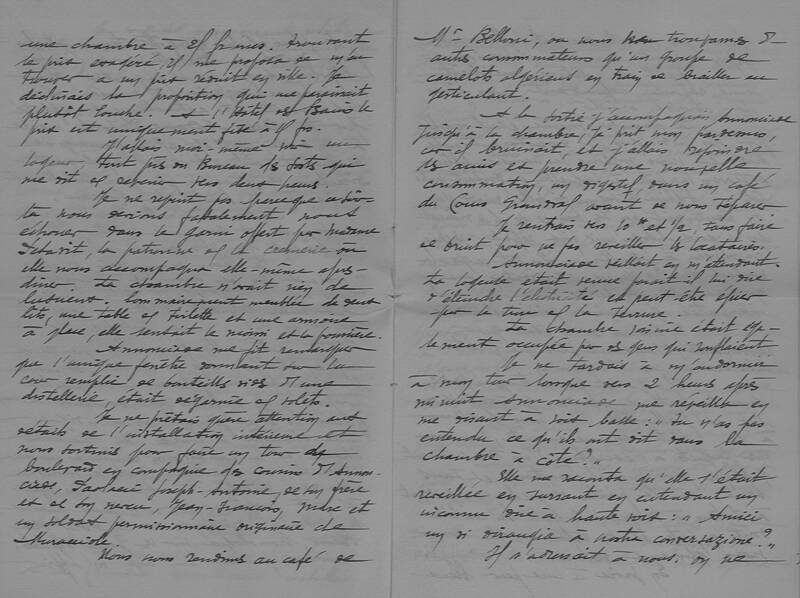 une chambre à 25 francs. Trouvant
le prix exagéré, il me proposa de m'en
trouver à un prix réduit en ville. Je
déclinais la proposition qui me paraissait
plutôt louche. A l'Hôtel des Bains le
prix est uniquement fixé à 25 frs.
J'allais moi-même voir un
logeur, tout près du Bureau des Postes qui
me dit de revenir vers deux heures.
Je ne revint pas parce que
nous devions fatalement nous
échouer dans le garni offert par madame
la patronne de la crémerie où
elle nous accompagna elle-même après-
dîner. La chambre n'avait rien de
luxueux. Sommairement meublée de deux
lits, une table de toilette et une armoire
à glace, elle sentait le moisi et la poussière.
Annonciade me fit remarquer
que l'unique fenêtre donnant sur la
cour remplie de bouteilles vides d'une
distillerie, était dégarnie de volets.
Je ne prêtais guère attention aux
détails de l'installation intérieure et
nous sortîmes pour faire un tour de
boulevard en compagnie des cousins d'Annon-
ciade, Joseph-Antoine, de son frère
et de son neveu, Jean-François, et
un soldat permissionnaire originaire de
Muracciole.
Nous nous rendîmes au café de
Mr Belloni, où nous ne trouvâmes d'-
autres consommateurs qu'un groupe de
camelots algériens en train de brailler en
gesticulant.
A la sortie j'accompagnais Annonciade
jusqu'à la chambre, je prit mon pardessus,
car il bruinait, et j'allais rejoindre
les amis et prendre une nouvelle
consommation, un digestif, dans un café
du Cours Grandval avant de nous séparer
Je rentrais vers 10 h et 1/2, sans faire
de bruit pour ne pas réveiller les locataires.
Annonciade veillait en m'attendant.
La logeuse était venue paraît-il lui dire
d'éteindre l'électricité et peut être épier
par le trou de la serrure.
La chambre voisine était éga-
lement occupée par des gens qui ronflaient
Je ne tardais à m'endormir
à mon tour lorsque vers 2 heures après
minuit Annonciade me réveilla en
me disant à voix basse : "Tu n'as pas
entendu ce qu'ils ont dit dans la
chambre à côté ? "
Elle me raconta qu'elle s'était
réveillée en sursaut en entendant un
inconnu dire à haute voix : " Amici
un vi dirangia a nostra conversazione ? "
Il s'adressait à nous. On ne